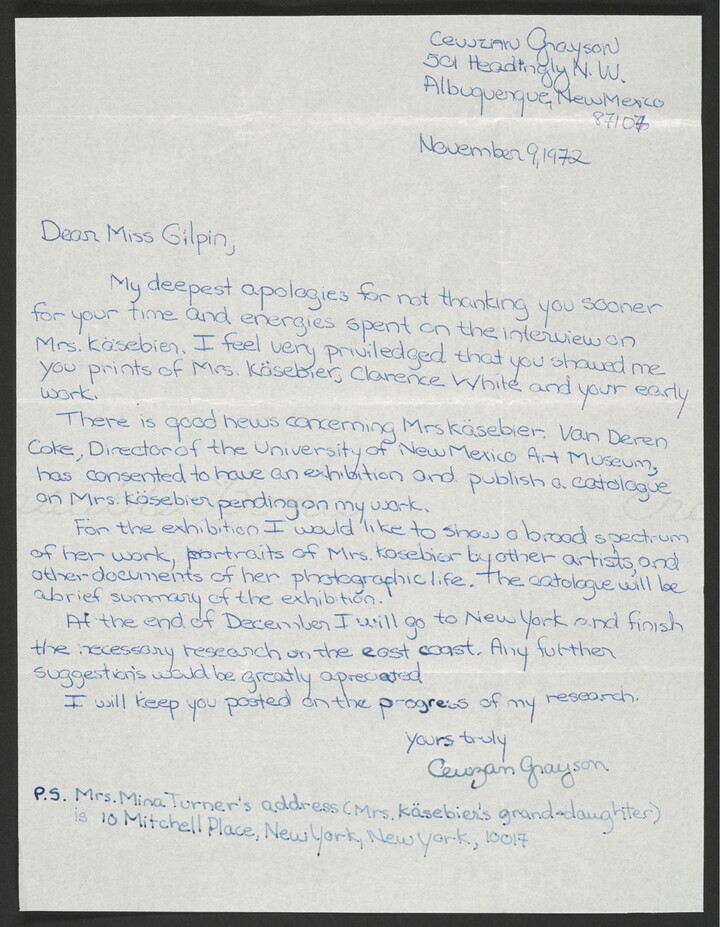 Cewzan Grayson
501 Headingly N.W.
Albuquerque, New Mexico
87107
November 9, 1972
Dear Miss Gilpin,
My deepest apologies for not thanking you sooner
for your time and energies spent on the interview on
Mrs. Käsebier. I feel very priviledged that you showed me
you prints of Mrs. Käsebier, Clarence White and your early
work.
There is good news concerning Mrs Käsebier. Van Deren
Coke, Director of the University of New Mexico Art Museum,
has consented to have an exhibition and publish a catologue
on Mrs. Käsebier pending on my work.
For the exhibition I would like to show a broad spectrum
of her work, portraits of Mrs. Kasebier by other artists, and
other documents of her photographic life. The catologue will be
a brief summary of the exhibition.
At the end of December I will go to New York and finish
the necessary research on the east coast. Any further
suggestions would be greatly apreciated
I will keep you posted on the progress of my research.
Yours truly
Cewzan Grayson.
P.S. Mrs. Mina Turner's address (Mrs. Käsebier's grand-daughter)
is 10 Mitchell Place, New York, New York, 10017